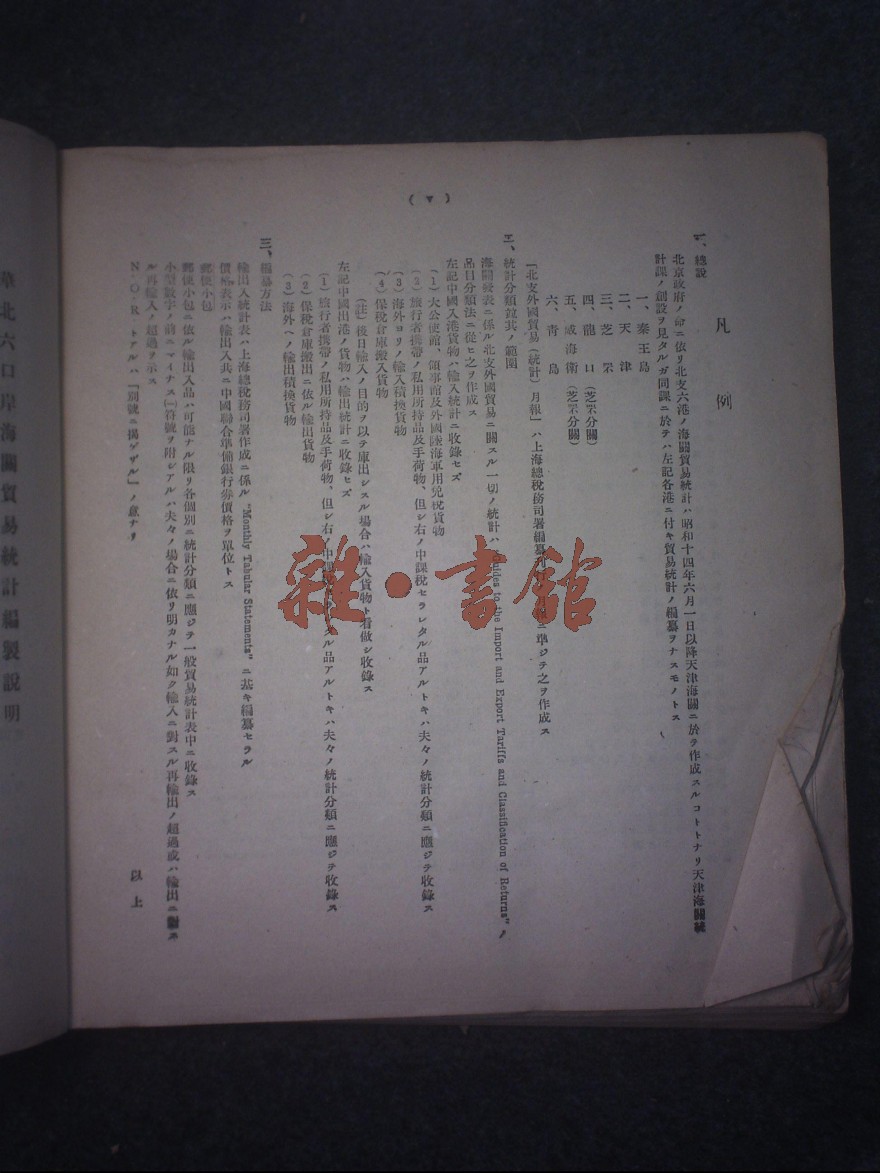 凡例
一、總說
北京政府ノ命ニ依リ北支六港ノ海關貿易統計ハ昭和十四年六月一日以降天津海關ニ於テ作成スルコトトナリ天津海關統
計課ノ創設ヲ見タルガ同課ニ於テハ左記各港ニ付キ貿易統計ノ編纂ヲナスモノトス
一、秦王島
二、天津
三、芝罘
四、龍口(芝罘分關)
五、威海衛(芝罘分關)
六、靑島
「北支外國貿易(統計)月報」ハ上海總稅務司署編纂 準ジテ之ヲ作成ス
二、統計分類竝其ノ範圍
海關發表ニ係ル北支外國貿易ニ關スル一切ノ統計ハ "Guides to the Import and Export Tariffs and Classification of Returns" ノ
品目分類法ニ從ヒ之ヲ作成ス
左記中國入港貨物ハ輸入統計ニ收錄セズ
(1)大公使館、領事館及外國陸海軍用免稅貨物
(2)旅行者携帶ノ私用所持品及手荷物、但シ右ノ中課稅セラレタル品アルトキハ夫々ノ統計分類ニ應ジテ收錄ス
(3)海外ヨリノ輸入積換貨物
(4)保稅倉庫搬入貨物
(註)後日輸入ノ目的ヲ以テ庫出シスル場合ハ輸入貨物ト看做シ收錄ス
左記中國出港ノ貨物ハ輸出統計ニ收錄セズ
(1)旅行者携帶ノ私用所持品及手荷物、但シ右ノ中課稅 タル品アルトキハ夫々ノ統計分類ニ應ジテ收錄ス
(2)保稅倉庫搬出ニ依ル輸出貨物
(3)海外ヘノ輸出積換貨物
三、編纂方法
輸出入統計表ハ上海總稅務司署作成ニ係ル "Monthly Tabular Statements" ニ基キ編纂セラル
價格表示ハ輸出入共ニ中國聯合準備銀行券價格ヲ單位トス
郵便小包
郵便小包ニ依ル輸出入品ハ可能ナル限リ各個別ニ統計分類ニ應ジテ一般貿易統計表中ニ收錄ス
小型數字ノ前ニマイナス(-)符號ヲ附シアルハ夫々ノ場合ニ依リ明カナル如ク輸入ニ對スル再輸出ノ超過或ハ輸出ニ對ス
ル再輸入ノ超過ヲ示ス
N.O.R.トアルハ「別號ニ揭ゲザル」ノ意ナリ
以上
華北六口岸海關貿易統計編製說明
雜·書館